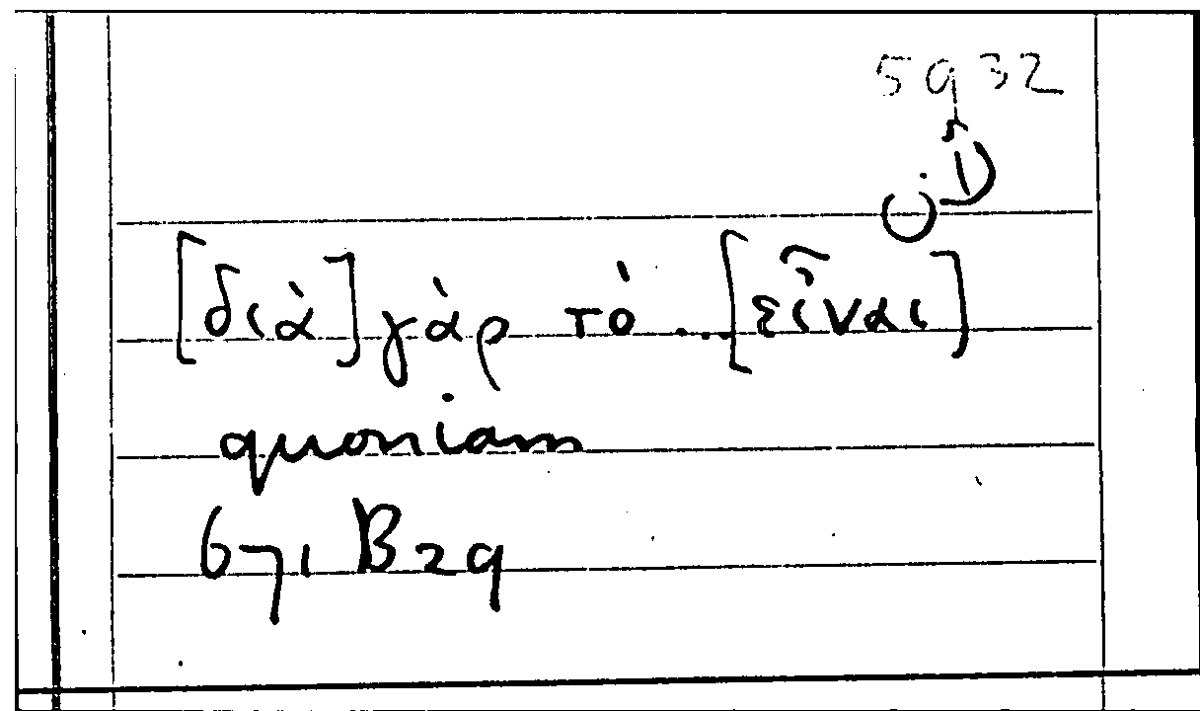 5932
[διὰ] γὰρ τὸ ... [εἶναι]
quoniam
671 B29